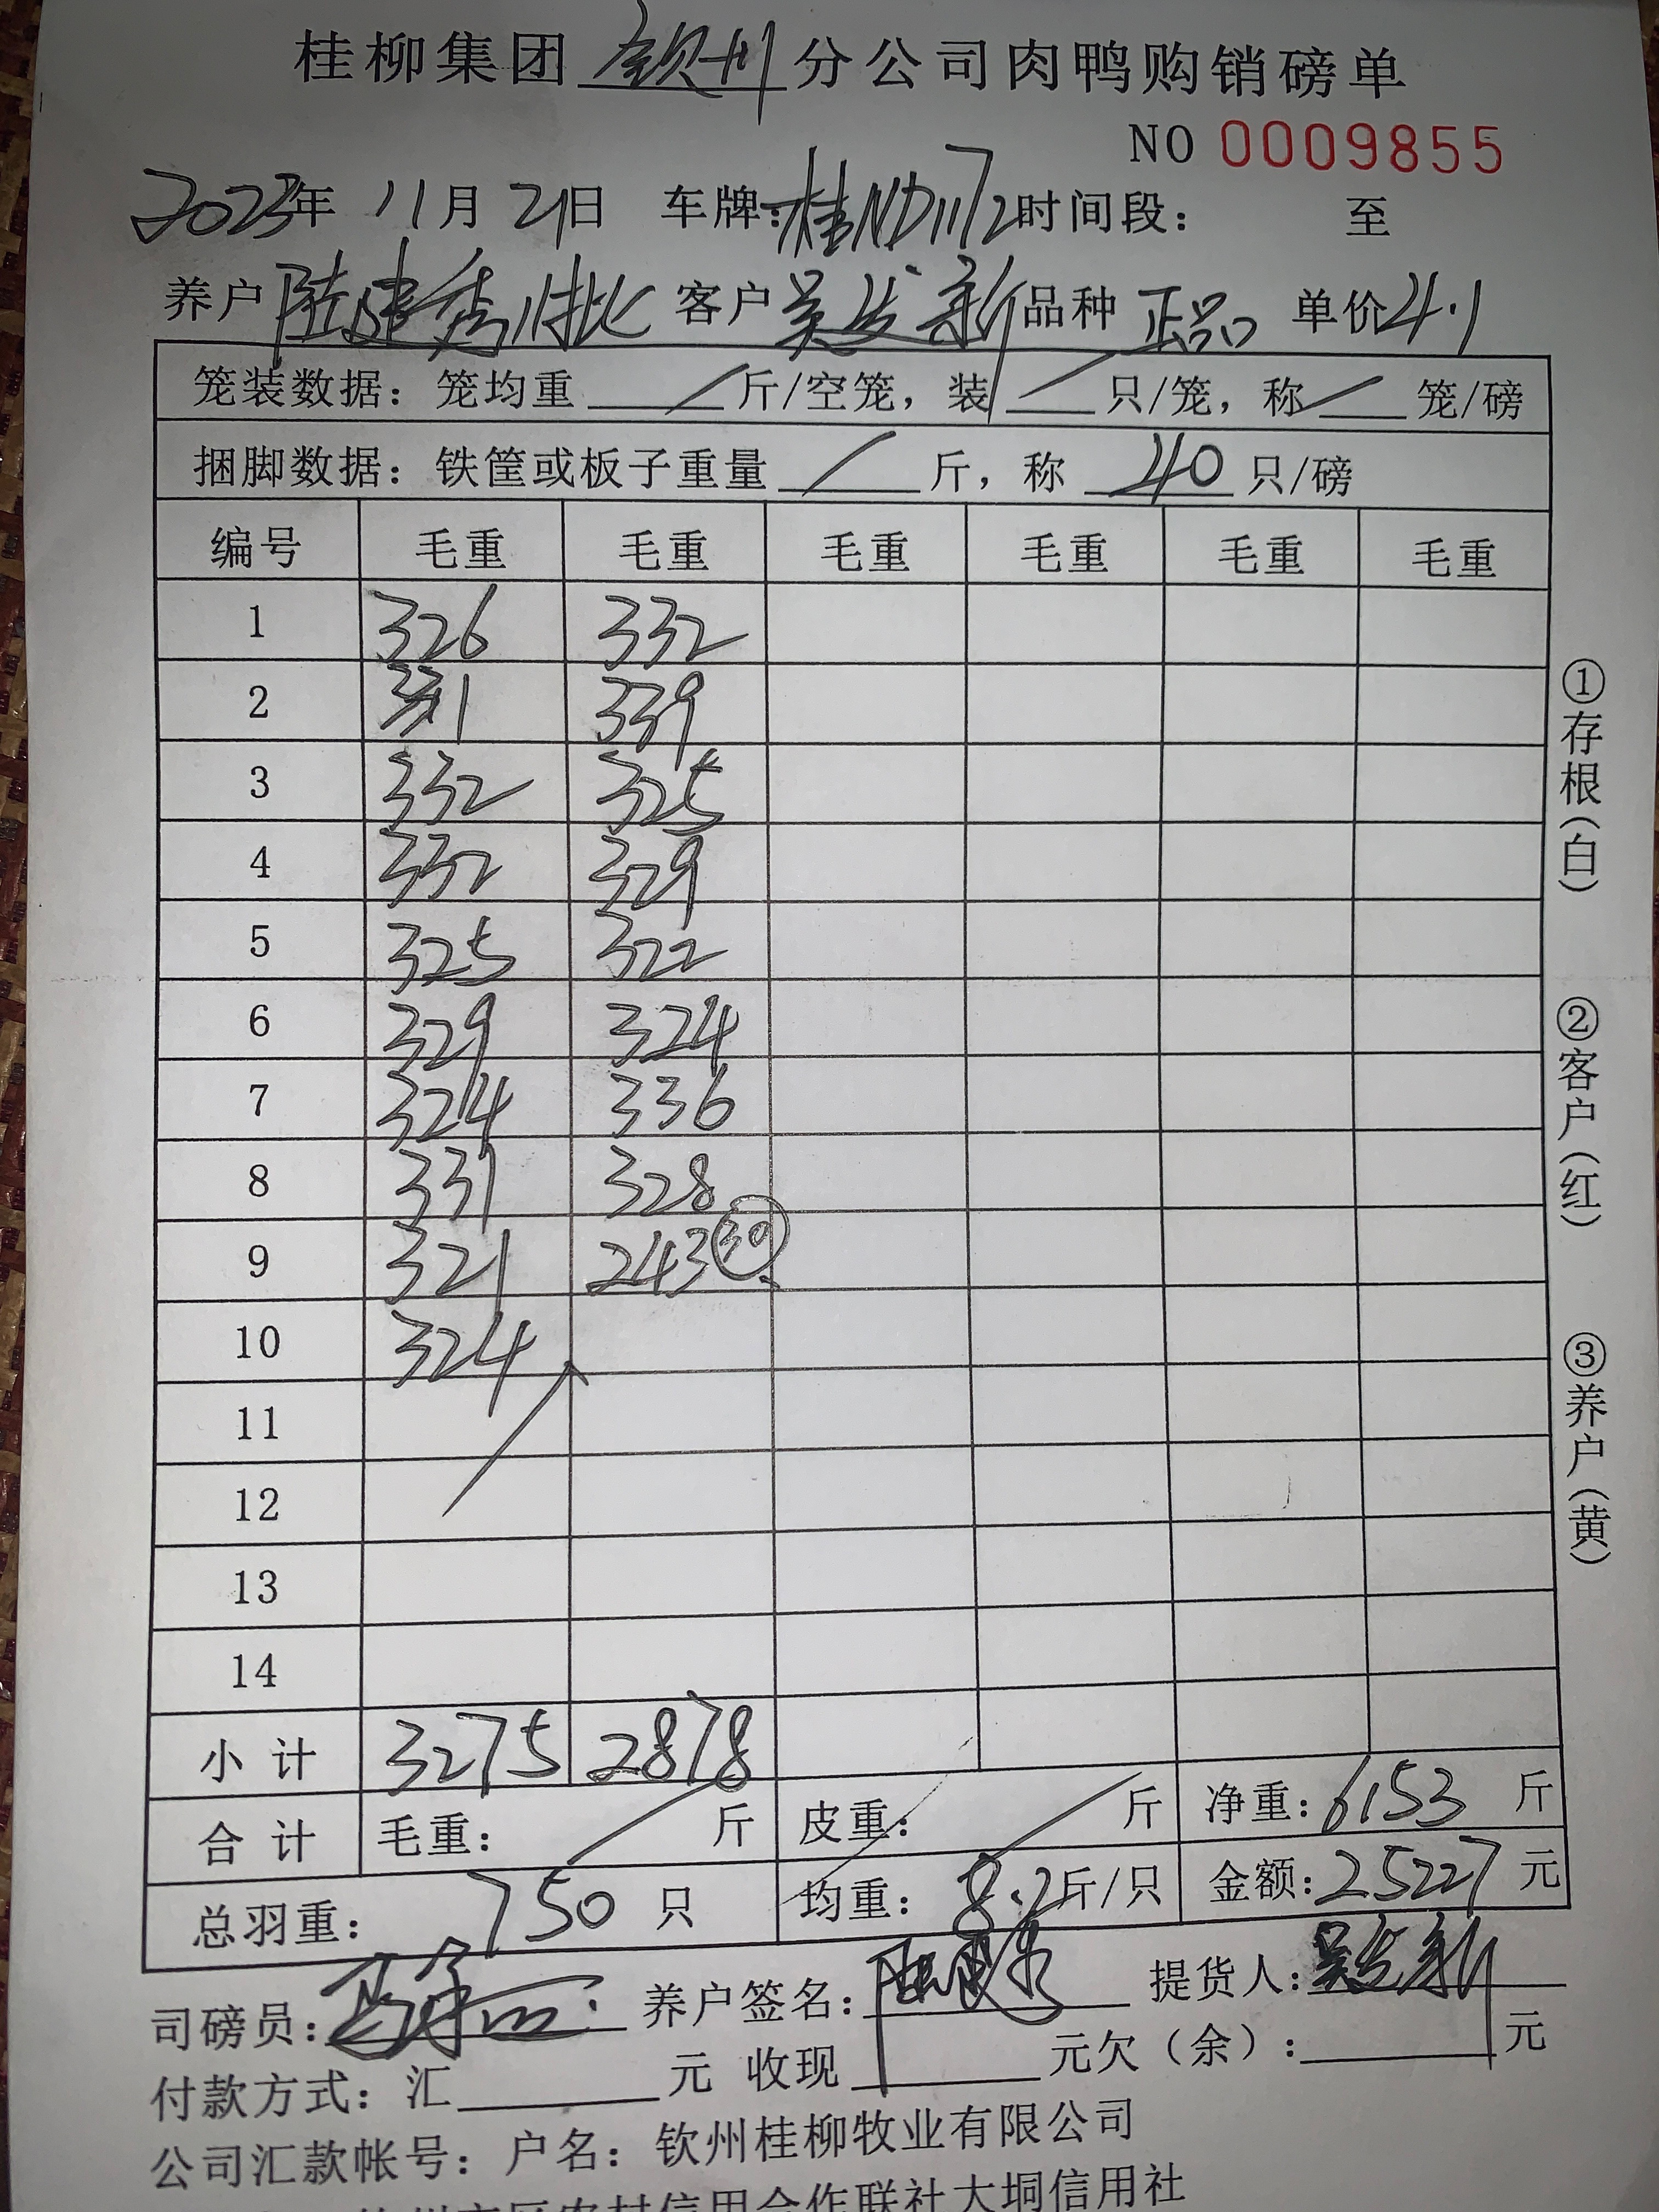 桂柳集团 钦州 分公司肉鸭购销磅单
NO 0009855
2023年 11月 21日 车牌:桂ND1172时间段: 至
养户 陆建秀 批 客户 吴发新 品种 正品 单价4.1
笼装数据:笼均重 / 斤/空笼,装 / 只/笼,称 / 笼/磅
捆脚数据:铁筐或板子重量 / 斤,称 40 只/磅
编号 毛重 毛重 毛重 毛重 毛重 毛重
1 326 332
2 331 339
3 332 325
4 332 329
5 325 322
6 329 324
7 324 336
8 331 328
9 321 243 30
10 324
11
12
13
14
小计 3275 2878
合计 毛重: / 斤 皮重: / 斤 净重:6153 斤
总羽重: 750 只 均重: 8.2斤/只 金额:25227 元
司磅员: 养户签名: 提货人:吴发新
付款方式:汇 元 收现 元欠(余): 元
公司汇款帐号:户名:钦州桂柳牧业有限公司
农村信用合作联社大垌信用社
①存根(白)
②客户(红)
③养户(黄)